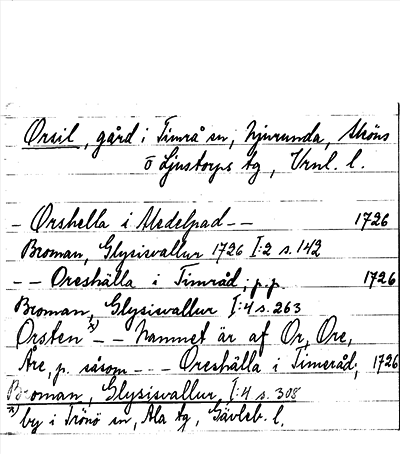 Orsil, gård i Timrå sn, Njurunda, Sköns
o Ljustorps tg, Vrnl. l.
- Orshella i Medelpad -- 1726
Broman, Glysisvallur 1726 I:2 s. 142
-- Oreshälla i Timråd, p.p. 1726
Broman, Glysisvallur I:4 s. 263
Orsten x) -- Namnet är af Or, Ore,
Åre, p. såsom --- Oreshälla i Timeråd, 1726
Broman, Glysisvallur, I:4 s. 308
x) by i Trönö sn, Ala tg, Gävleb. l.